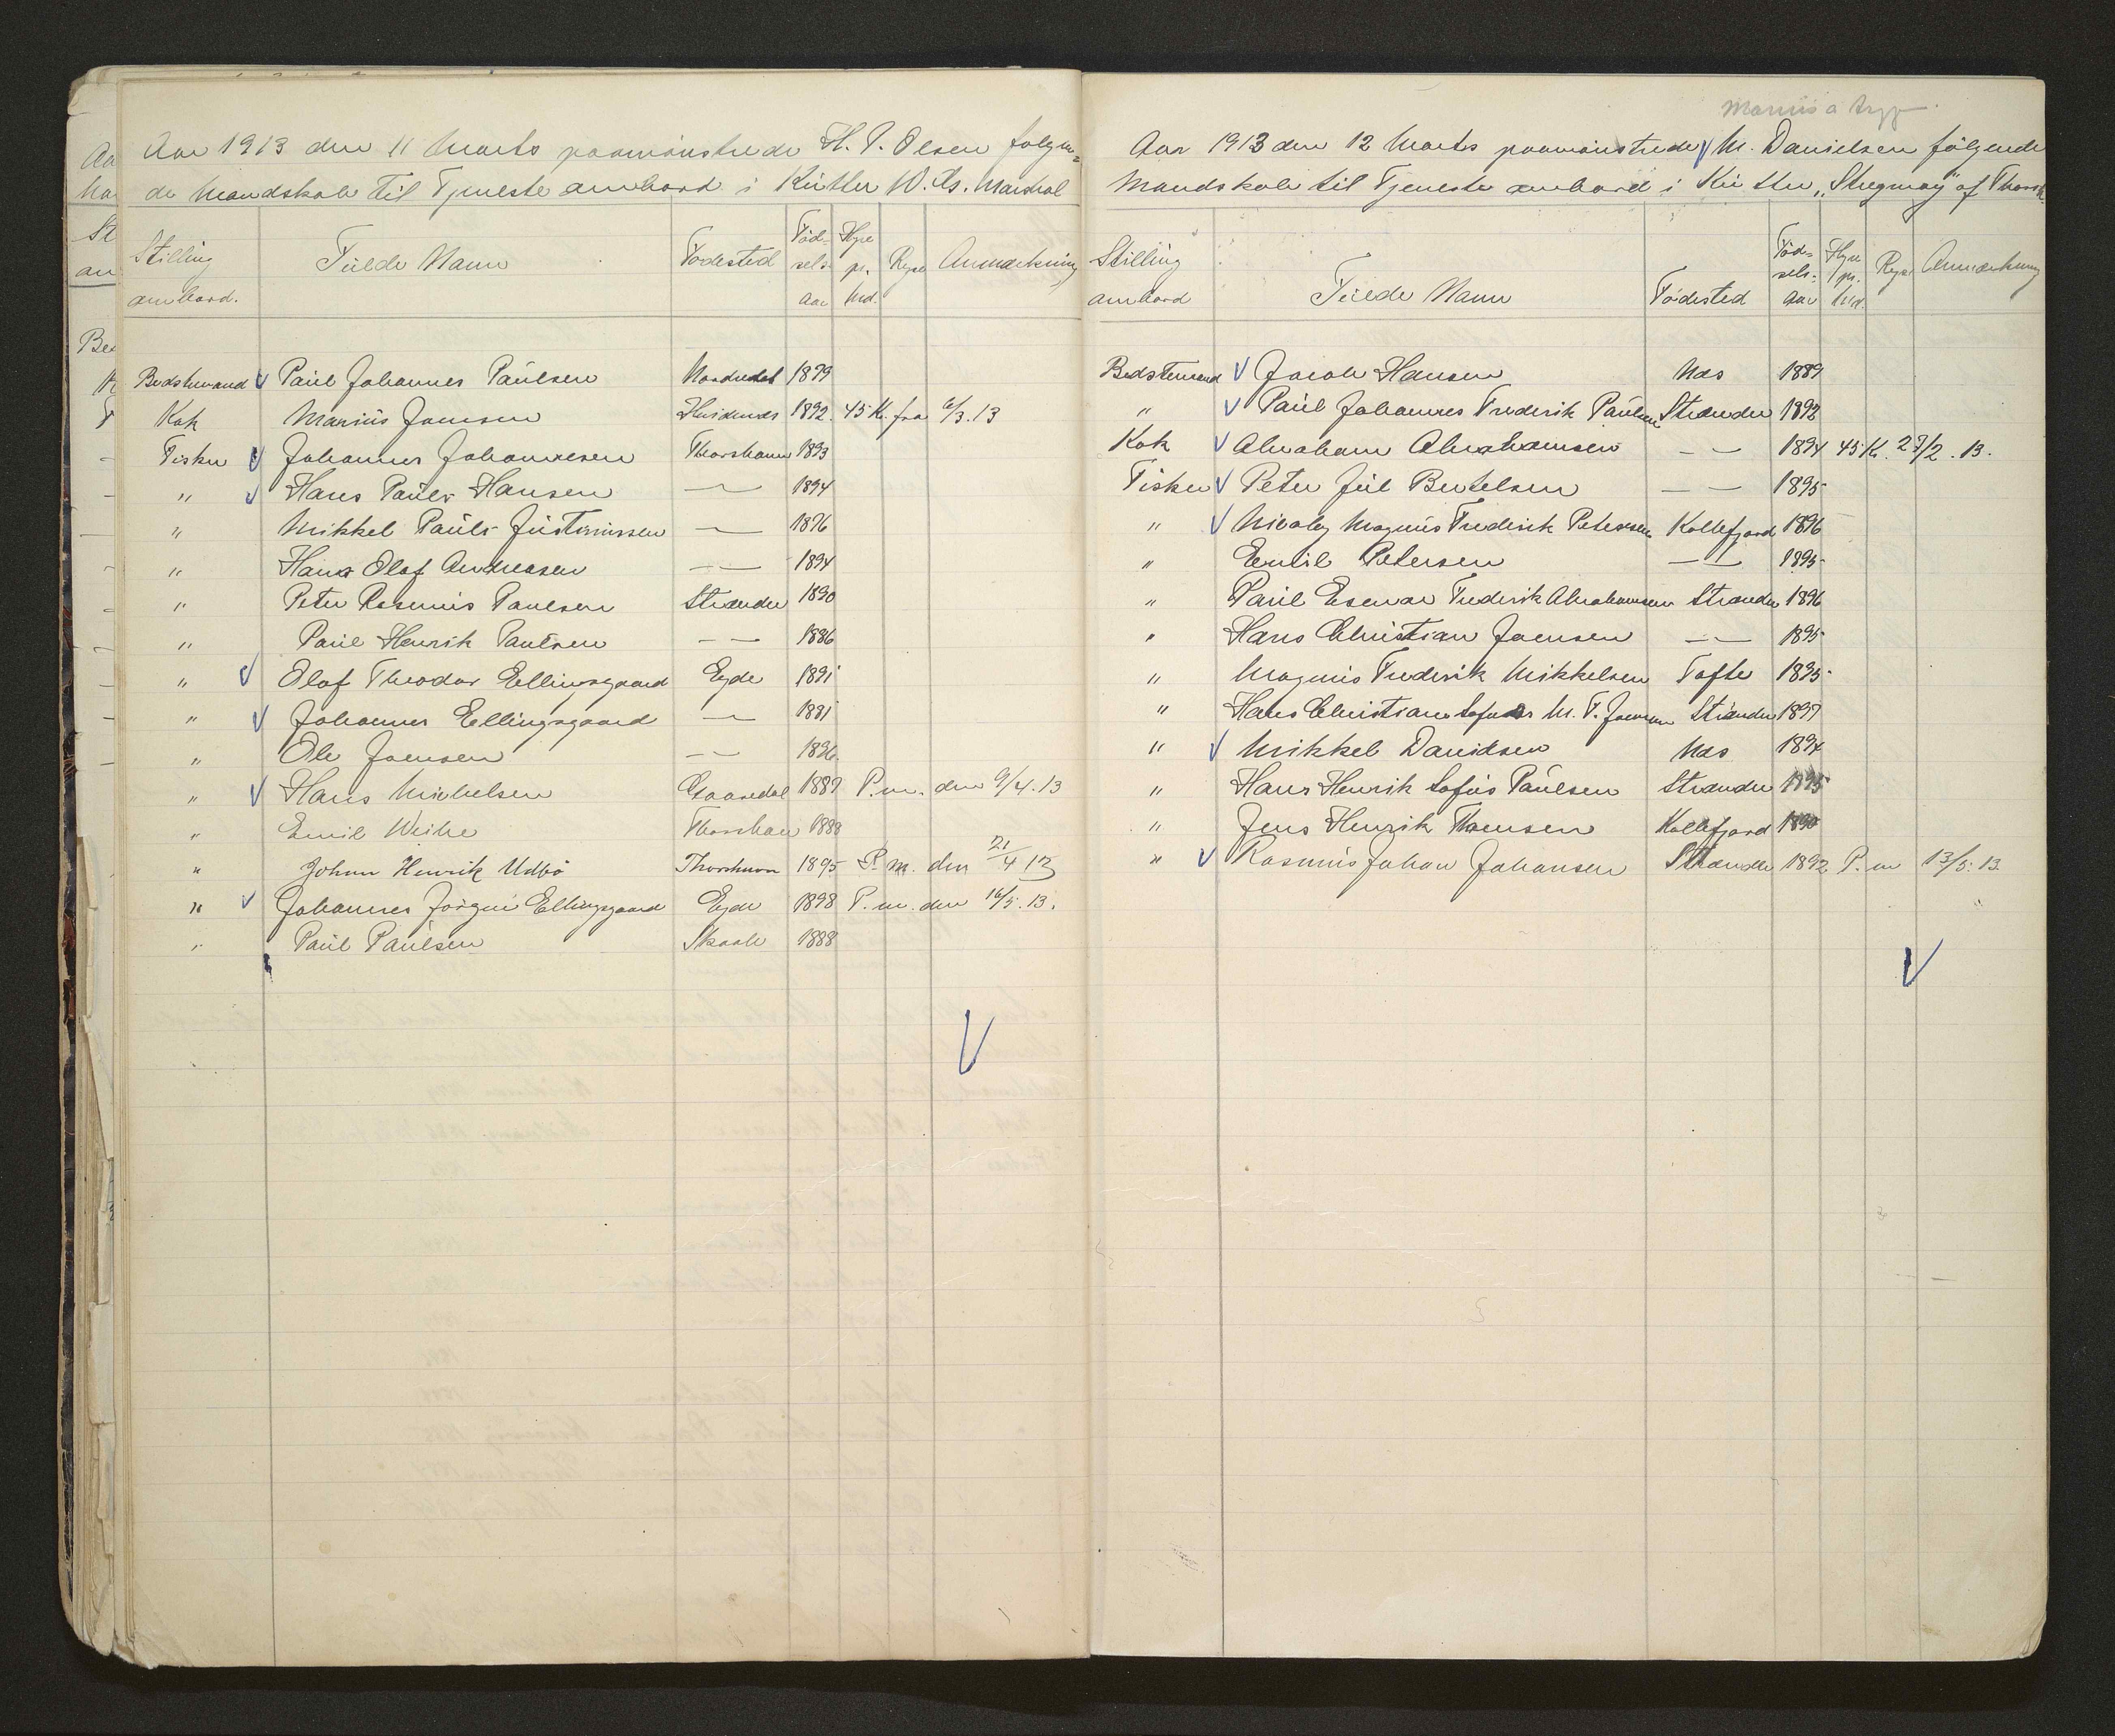 Aar 1913 den 11 Marts paamönstrede H. P. Olsen følgen=
de Mandskab til Tjeneste ombord i Kutter W. Marshal
Stilling ombord. Fulde Navn Fødested Fød- sels- Aar Hyre pr. Md. Rejse Anmærkning
Bedstemand Paul Johannes Paulsen Nordredal 1879
Kok Marius Joensen 1892. 45 K. fra 6/3. 13
Fisker Johannes Johannesen Thorshavn 1893
" Hans Pauli Hansen — 1894
" Mikkel Pauli Justinussen — 1876
" Hans Olaf Andreasen — 1894
" Peter Rasmus Paulsen Strænder 1890
" Paul Henrik Paulsen — — 1886
" Olaf Theodor Ellingsgaard Eyde 1891
" Johannes Ellingsgaard — 1881
" Ole Joensen — — 1896
" Hans Michelsen Gaasedal 1887 P.m. den 9/4. 13
" Emil Weihe Thorshavn 1888
" Johan Henrik Udbö Thorshavn 1895 P. m. den 21/4 13
" Johannes Jørgen Ellingsgaard Eyde 1898 P. m. den 16/5. 13.
" Paul Paulsen Skaale 1888
Marius á Rygg
Aar 1913 den 12 Marts paamönstrede M. Danielsen følgende
Mandskab til Tjeneste ombord i Kutter "Stegmay" af Thorsh.
Stilling ombord Fulde Navn Fødested Føds- sels- Aar Hyre pr. Md. Rejse Anmærkning
Bedstemand Jacob Hansen Næs 1889
" Paul Johannes Frederik Paulsen Strænder 1892
Kok Abraham Abrahamsen — — 1894 45 K. 27/2. 13.
Fisker Peter Juul Bertelsen — — 1895
" Nicolay Magnus Frederik Petersen Kollefjord 1896
" Emil Petersen — — 1895
" Paul Esmar Frederik Abrahamsen Strænder 1896
" Hans Christian Joensen — — 1895
" Magnus Frederik Mikkelsen Tofte 1895
" Hans Christian Sofus M. F. Joensen Strænder 1897
" Mikkel Danielsen Næs 1894
" Hans Henrik Sofus Paulsen Strænder 1895
" Jens Henrik Thomsen Kollefjord 1890
" Rasmus Johan Johansen Strænder 1892 P. m 13/5. 13.